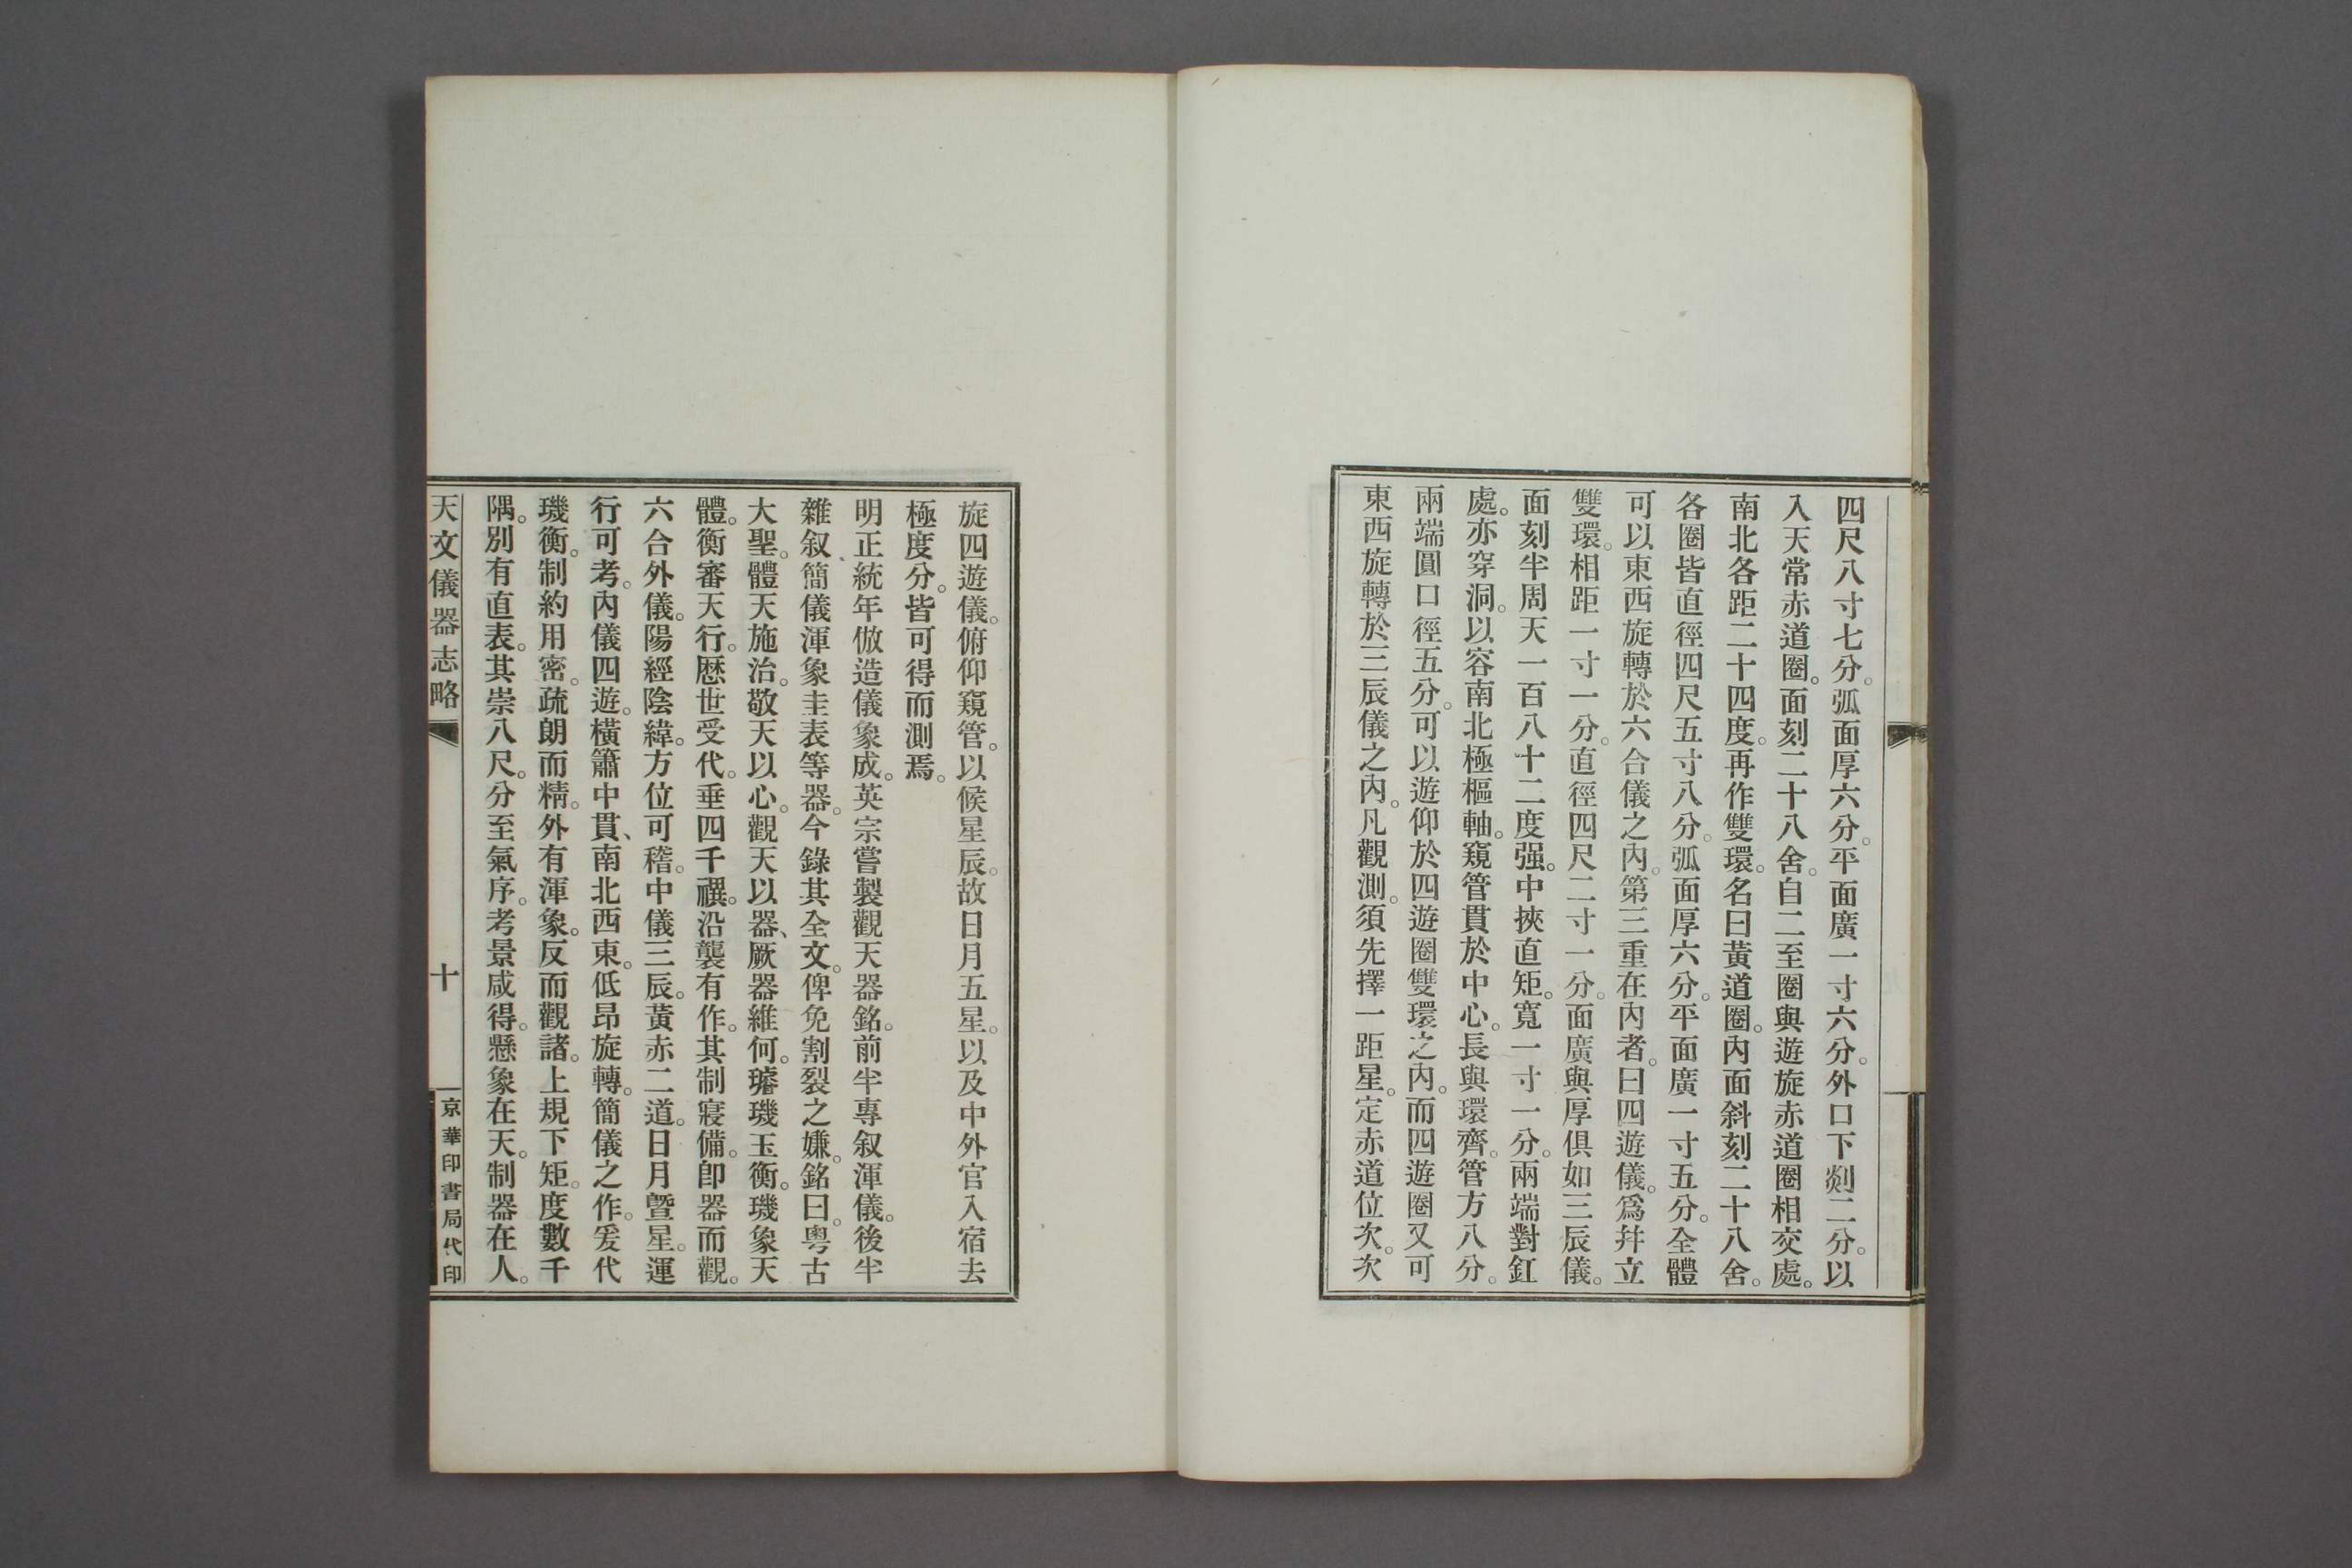 四尺八寸七分。弧面厚六分。平面廣一寸六分。外口下剡二分。以
入天常赤道圈。面刻二十八舍。自二至圈與遊旋赤道圈相交處。
南北各距二十四度。再作雙環。名曰黃道圈。內面斜刻二十八舍。
各圈皆直徑四尺五寸八分。弧面厚六分。平面廣一寸五分。全體
可以東西旋轉於六合儀之內。第三重在內者。曰四遊儀。爲幷立
雙環。相距一寸一分。直徑四尺二寸一分。面廣與厚俱如三辰儀。
面刻半周天一百八十二度强。中挾直矩。寬一寸一分。兩端對釭
處。亦穿洞。以容南北極樞軸。窺管貫於中心。長與環齊。管方八分。
兩端圓口徑五分。可以遊仰於四遊圈雙環之內。而四遊圈又可
東西旋轉於三辰儀之內。凡觀測。須先擇一距星。定赤道位次。次
旋四遊儀。俯仰窺管。以候星辰。故日月五星。以及中外官入宿去
極度分。皆可得而測焉。
明正統年倣造儀象成。英宗嘗製觀天器銘。前半專叙渾儀。後半
雜叙簡儀渾象圭表等器。今錄其全文。俾免割裂之嫌。銘曰。粵古
大聖。體天施治。敬天以心。觀天以器、厥器維何。璿璣玉衡。璣象天
體。衡審天行。歷世受代。垂四千禩。沿襲有作。其制寖備。卽器而觀。
六合外儀。陽經陰緯。方位可稽。中儀三辰。黃赤二道。日月曁星。運
行可考。內儀四遊。橫簫中貫、南北西東。低昂旋轉。簡儀之作。爰代
璣衡。制約用密。疏朗而精。外有渾象。反而觀諸。上規下矩。度數千
隅。別有直表。其崇八尺。分至氣序。考景咸得。懸象在天。制器在人。
天文儀器志略
十
京華印書局代印